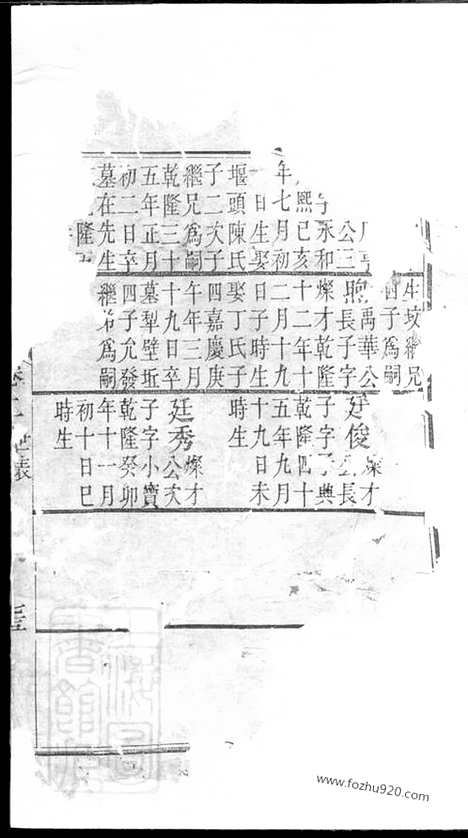 公三
承和
熙己亥
年七月初
日生娶
堰頭陳氏
子二次子
繼兄為嗣
乾隆三十
五年正月
初二日卒
墓在先生
隆
生坟繼兄
四子為嗣
煦禹華公
長子字
燦才乾隆
十二年十
二月十九
日子時生
娶丁氏子
四嘉慶庚
午年三月
十九日卒
墓犁壁坵
四子允發
繼弟為嗣
廷俊燦才
公長
子字子典
乾隆四十
五年九月
十九日未
時生
廷秀燦才
公次
子字小寶
乾隆癸卯
年十一月
初十日巳
時生
世表
www.fozhu920.com